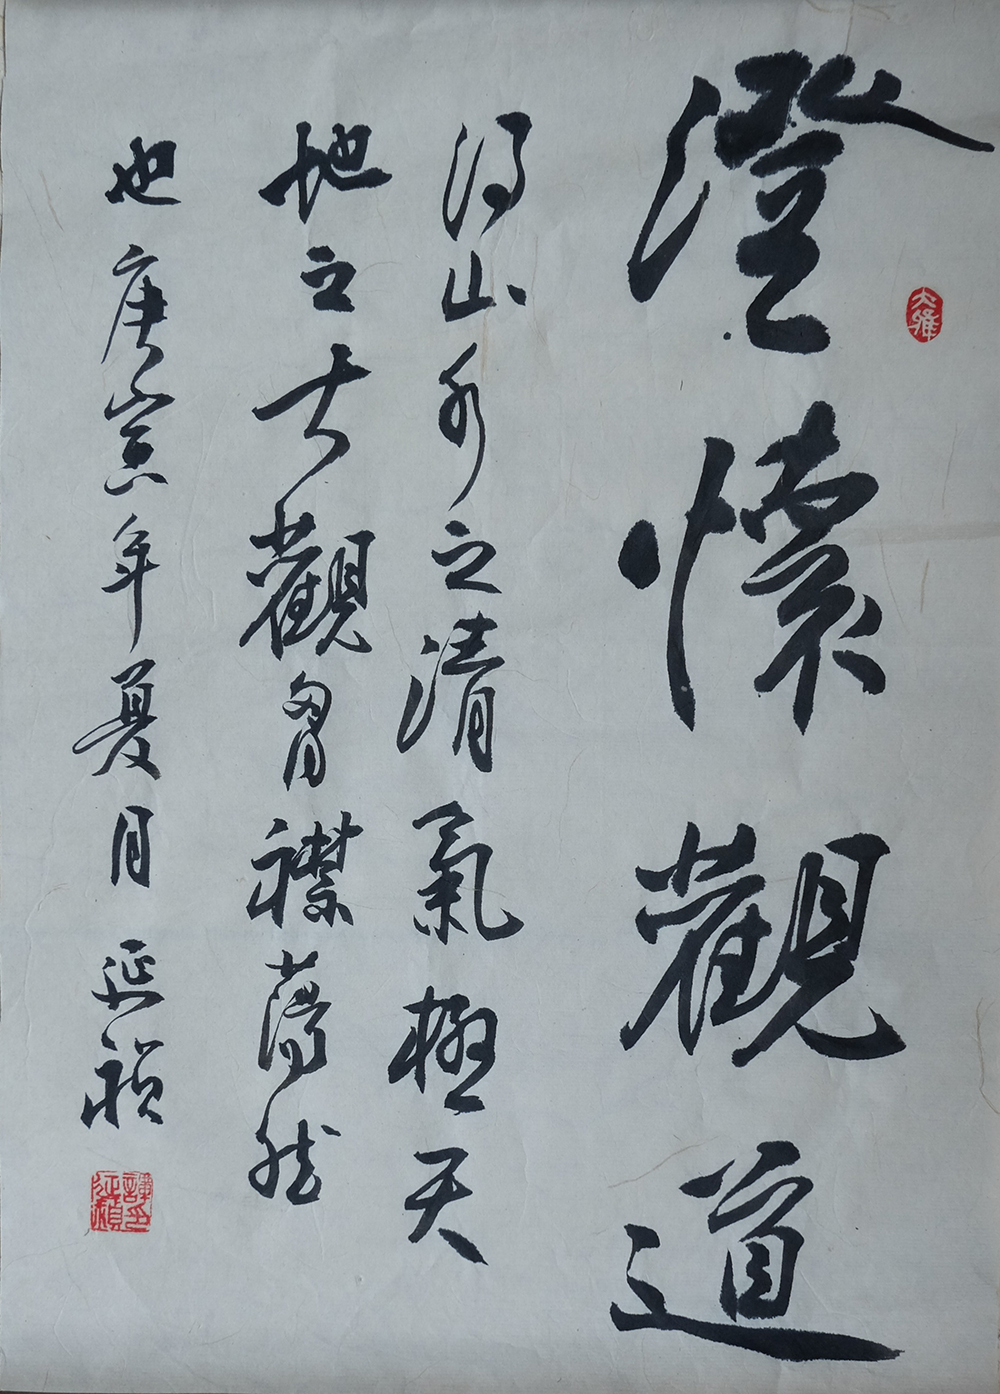 澄懷觀道
得山水之清氣極天
地之大觀胷襟蕩然
也庚寅年夏月延禎
大雅
譚延禎印